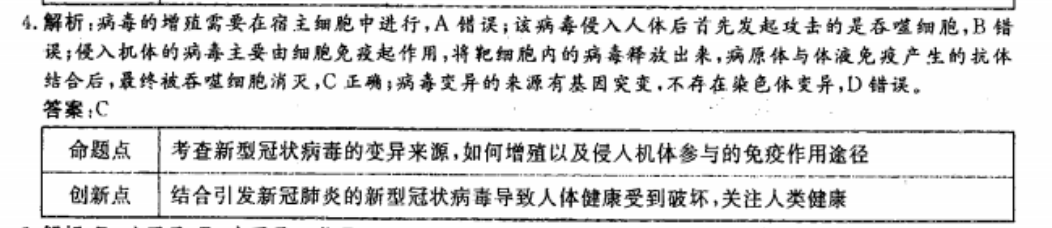 4.解析:病毒的增殖需要在宿主细胞中进行,A 错误;该病毒侵入人体后首先发起攻击的是吞噬细胞,B 错
误;侵入机体的病毒主要由细胞免疫起作用,将靶细胞内的病毒释放出来,病原体与体液免疫产生的抗体
结合后,最终被吞噬细胞消灭,C 正确;病毒变异的来源有基因突变,不存在染色体变异,D 错误。
答案:C
命题点 考查新型冠状病毒的变异来源,如何增殖以及侵人机体参与的免疫作用途径
创新点 结合引发新冠肺炎的新型冠状病毒导致人体健康受到破坏,关注人类健康